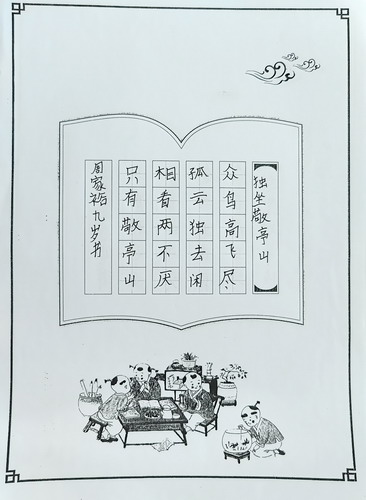 独坐敬亭山
众鸟高飞尽
孤云独去闲
相看两不厌
只有敬亭山
周家裕九岁书